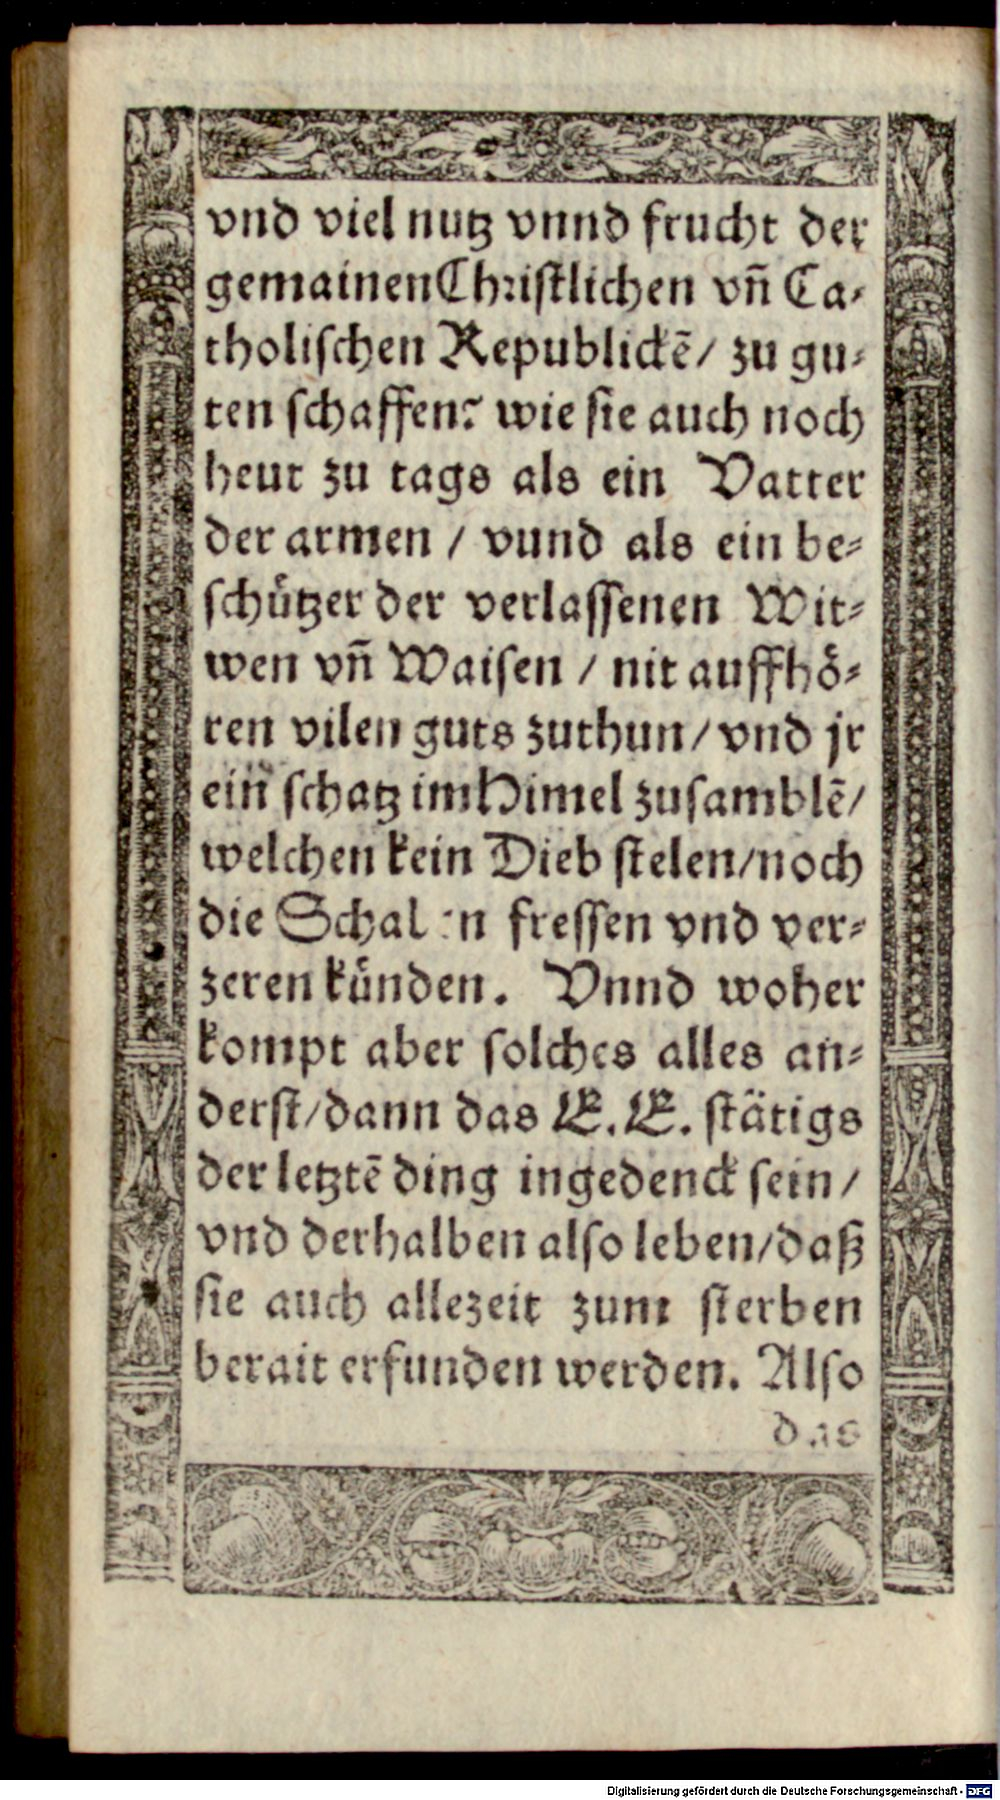 vnd viel nutz vnnd frucht der
gemainen Christlichen vñ Ca⸗
tholischen Republickē / zu gu⸗
ten schaffen? wie sie auch noch
heut zu tags als ein Vatter
der armen / vund als ein be⸗
schuͤtzer der verlassenen Wit⸗
wen vñ Waisen / nit auffhoͤ⸗
ren vilen guts zuthun / vnd jr
ein schatz im Himel zusamblē /
welchen kein Dieb stelen / noch
die fressen vnd ver⸗
zeren kuͤnden. Vnnd woher
kompt aber solches alles an⸗
derst / dann das E. E. staͤtigs
der letztē ding ingedenck sein /
vnd derhalben also leben / daß
sie auch allezeit zum sterben
berait erfunden werden. Also
das
Digitalisierung gefördert durch die Deutsche Forschungsgemeinschaft - DFG